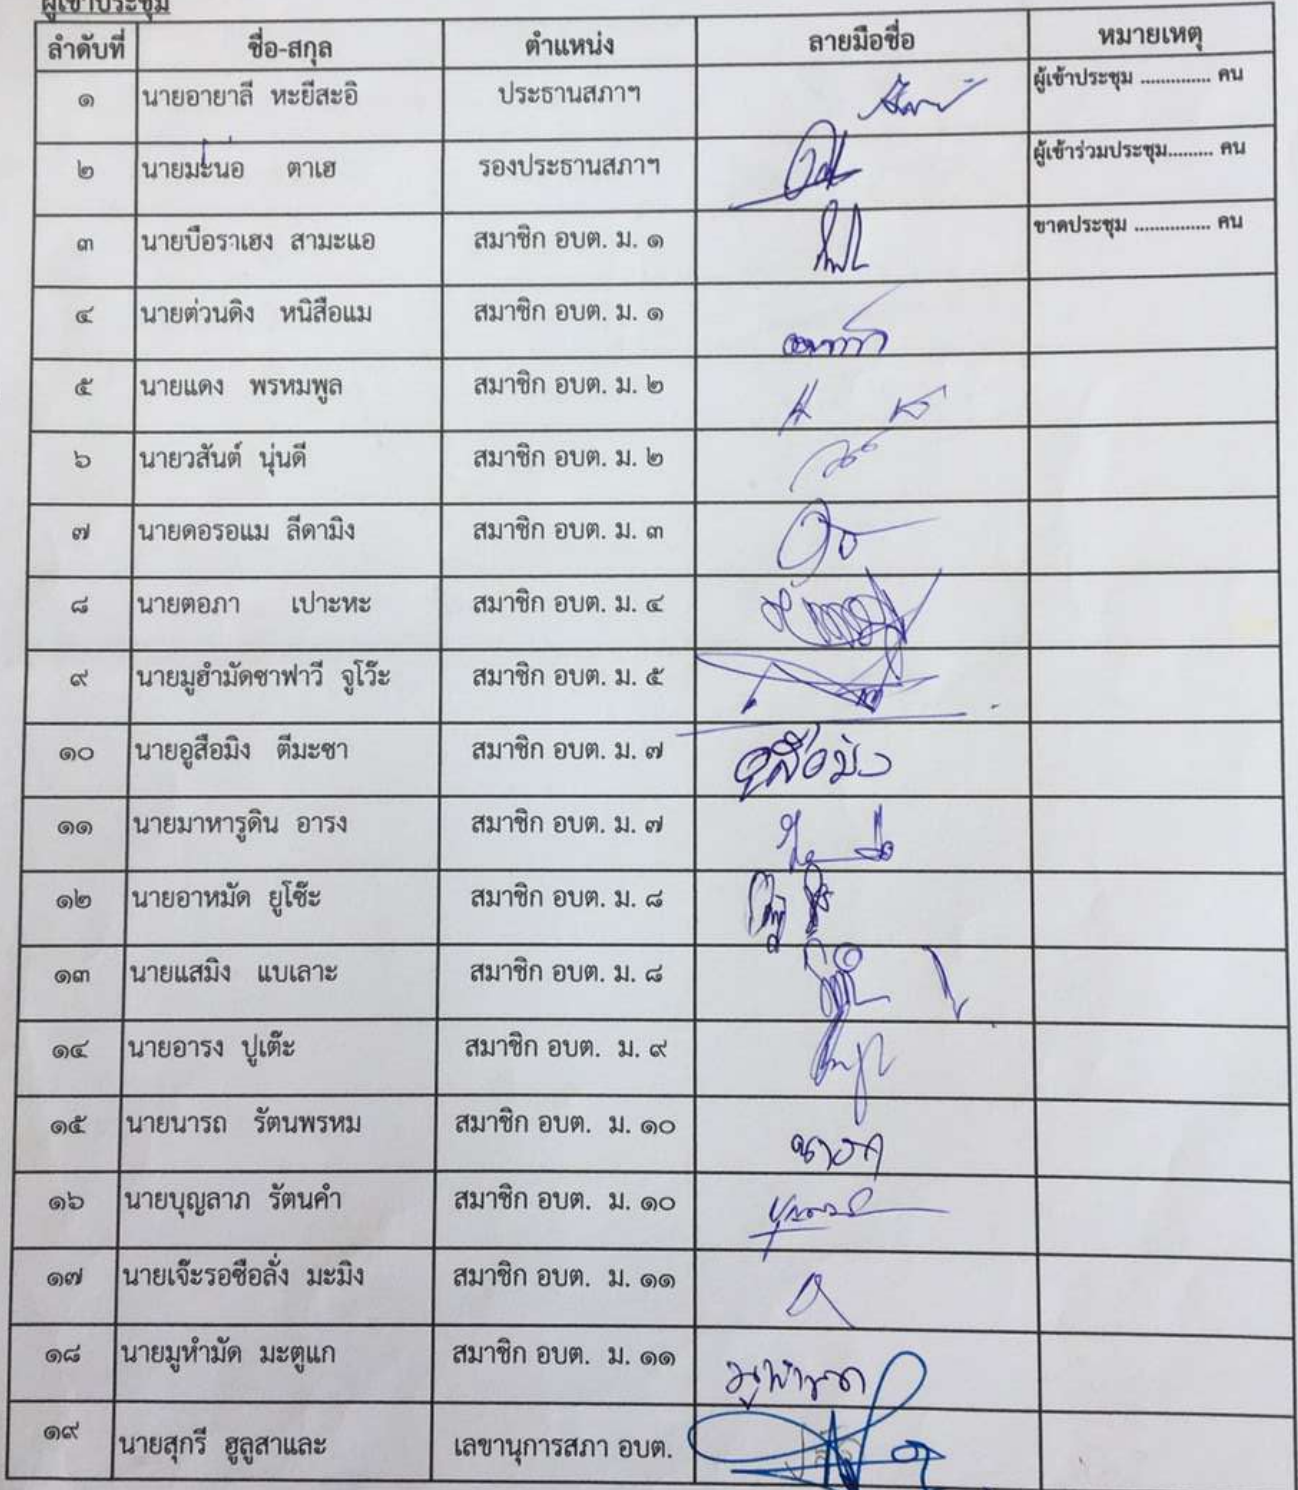 ผู้เข้าประชุม
ลำดับที่ ชื่อ-สกุล ตำแหน่ง ลายมือชื่อ หมายเหตุ
๑ นายอายาลี หะยีสะอิ ประธานสภาฯ ผู้เข้าประชุม .............. คน
๒ นายมะนอ ตาเฮ รองประธานสภาฯ ผู้เข้าร่วมประชุม......... คน
๓ นายบือราเฮง สามะแอ สมาชิก อบต. ม. ๑ ขาดประชุม ............... คน
๔ นายต่วนดิง หนิสือแม สมาชิก อบต. ม. ๑
๕ นายแดง พรหมพูล สมาชิก อบต. ม. ๒
๖ นายวสันต์ นุ่นดี สมาชิก อบต. ม. ๒
๗ นายดอรอแม ลีดามิง สมาชิก อบต. ม. ๓
๘ นายตอภา เปาะหะ สมาชิก อบต. ม. ๔
๙ นายมูฮำมัดซาฟาวี จูโว๊ะ สมาชิก อบต. ม. ๕
๑๐ นายอูสือมิง ตีมะซา สมาชิก อบต. ม. ๗ อูสือมิง
๑๑ นายมาหารูดิน อารง สมาชิก อบต. ม. ๗
๑๒ นายอาหมัด ยูโซ๊ะ สมาชิก อบต. ม. ๘
๑๓ นายแสมิง แบเลาะ สมาชิก อบต. ม. ๘
๑๔ นายอารง ปูเต๊ะ สมาชิก อบต. ม. ๙
๑๕ นายนารถ รัตนพรหม สมาชิก อบต. ม. ๑๐
๑๖ นายบุญลาภ รัตนคำ สมาชิก อบต. ม. ๑๐
๑๗ นายเจ๊ะรอซือลั่ง มะมิง สมาชิก อบต. ม. ๑๑
๑๘ นายมูหำมัด มะตูแก สมาชิก อบต. ม. ๑๑
๑๙ นายสุกรี ฮูลูสาและ เลขานุการสภา อบต.